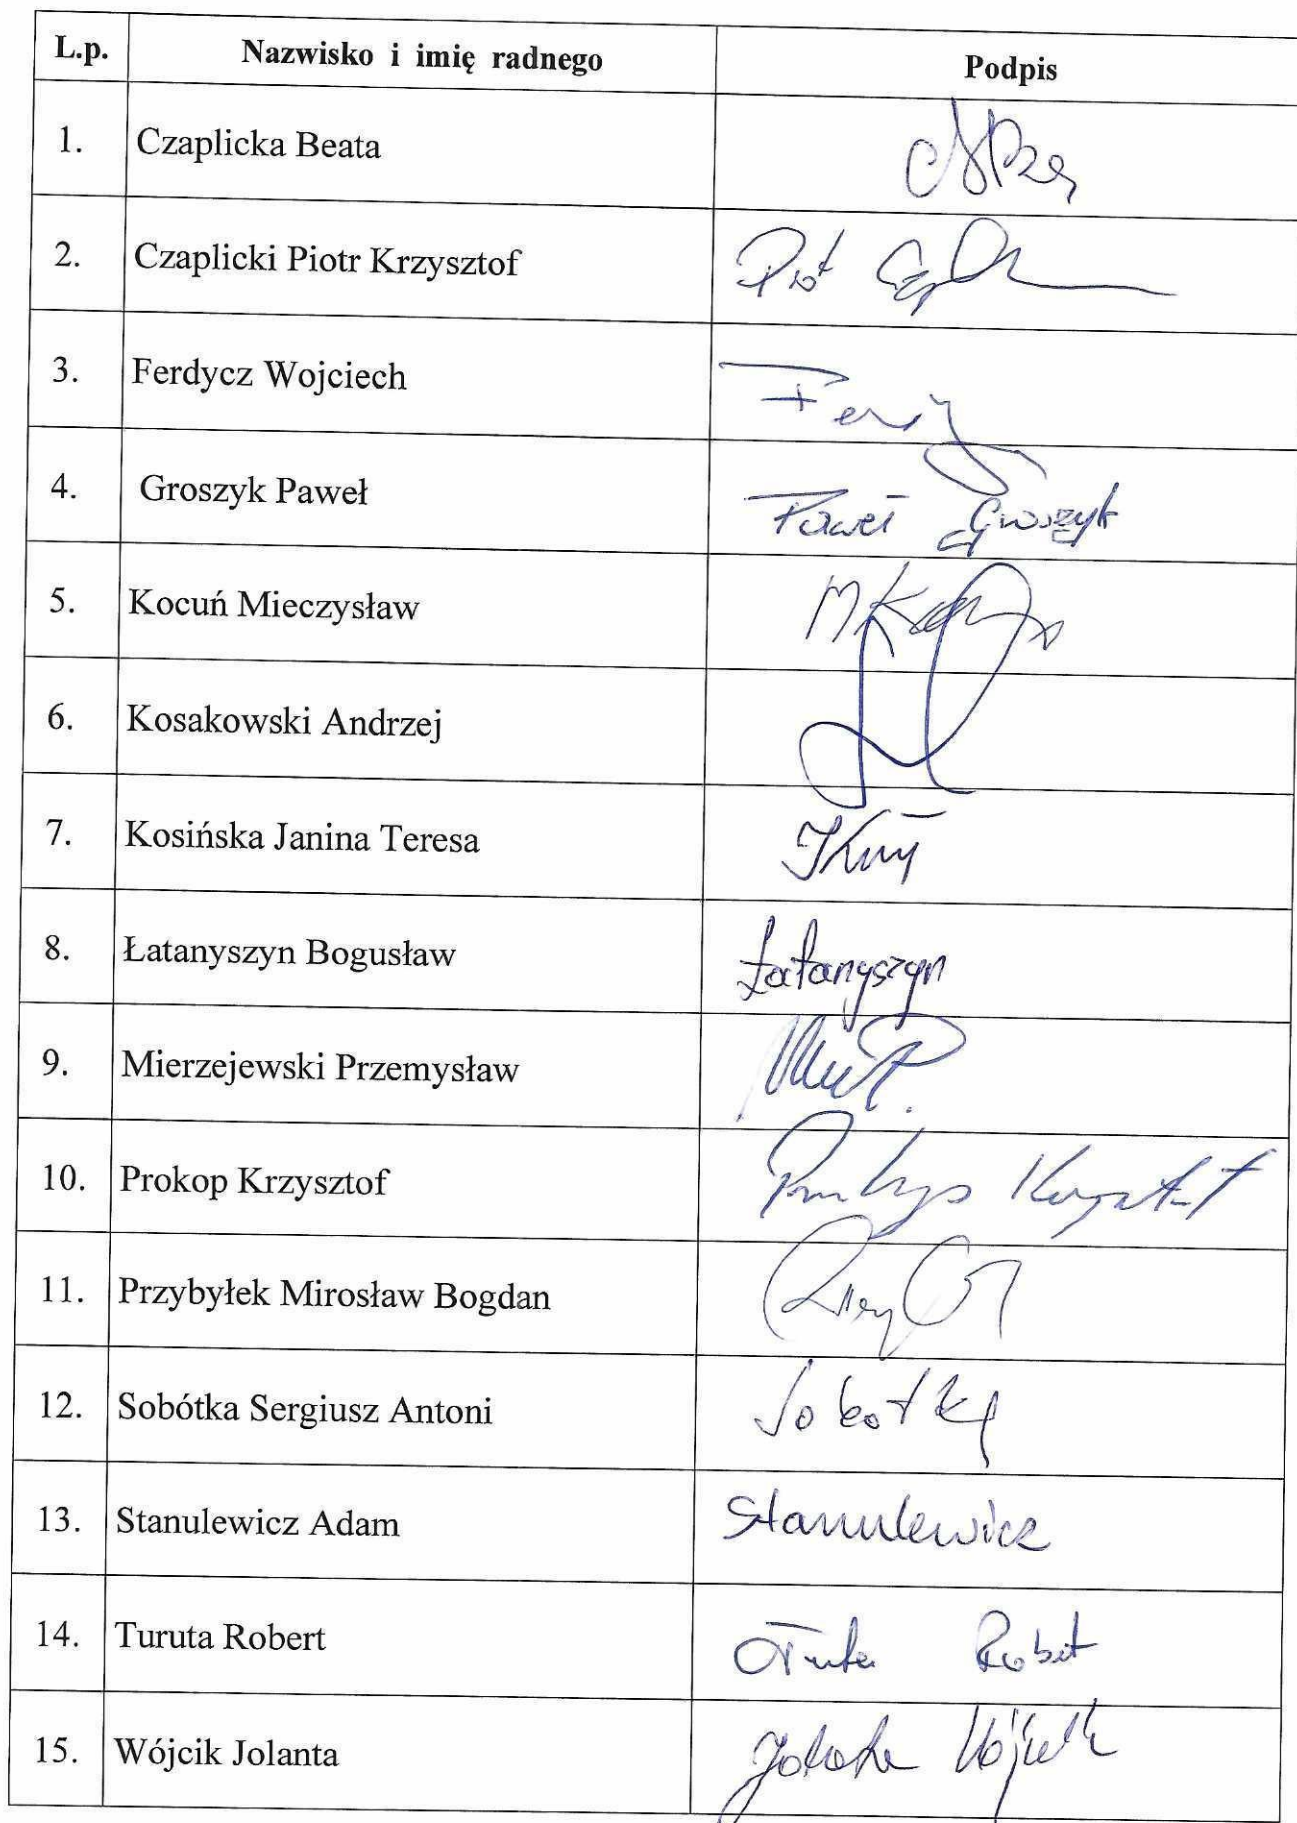 L.p. Nazwisko i imię radnego Podpis
1. Czaplicka Beata
2. Czaplicki Piotr Krzysztof
3. Ferdycz Wojciech
4. Groszyk Paweł Paweł Groszyk
5. Kocuń Mieczysław
6. Kosakowski Andrzej
7. Kosińska Janina Teresa
8. Łatanyszyn Bogusław Łatanyszyn
9. Mierzejewski Przemysław
10. Prokop Krzysztof
11. Przybyłek Mirosław Bogdan
12. Sobótka Sergiusz Antoni Sobótka
13. Stanulewicz Adam Stanulewicz
14. Turuta Robert Robert
15. Wójcik Jolanta Jolanta Wójcik